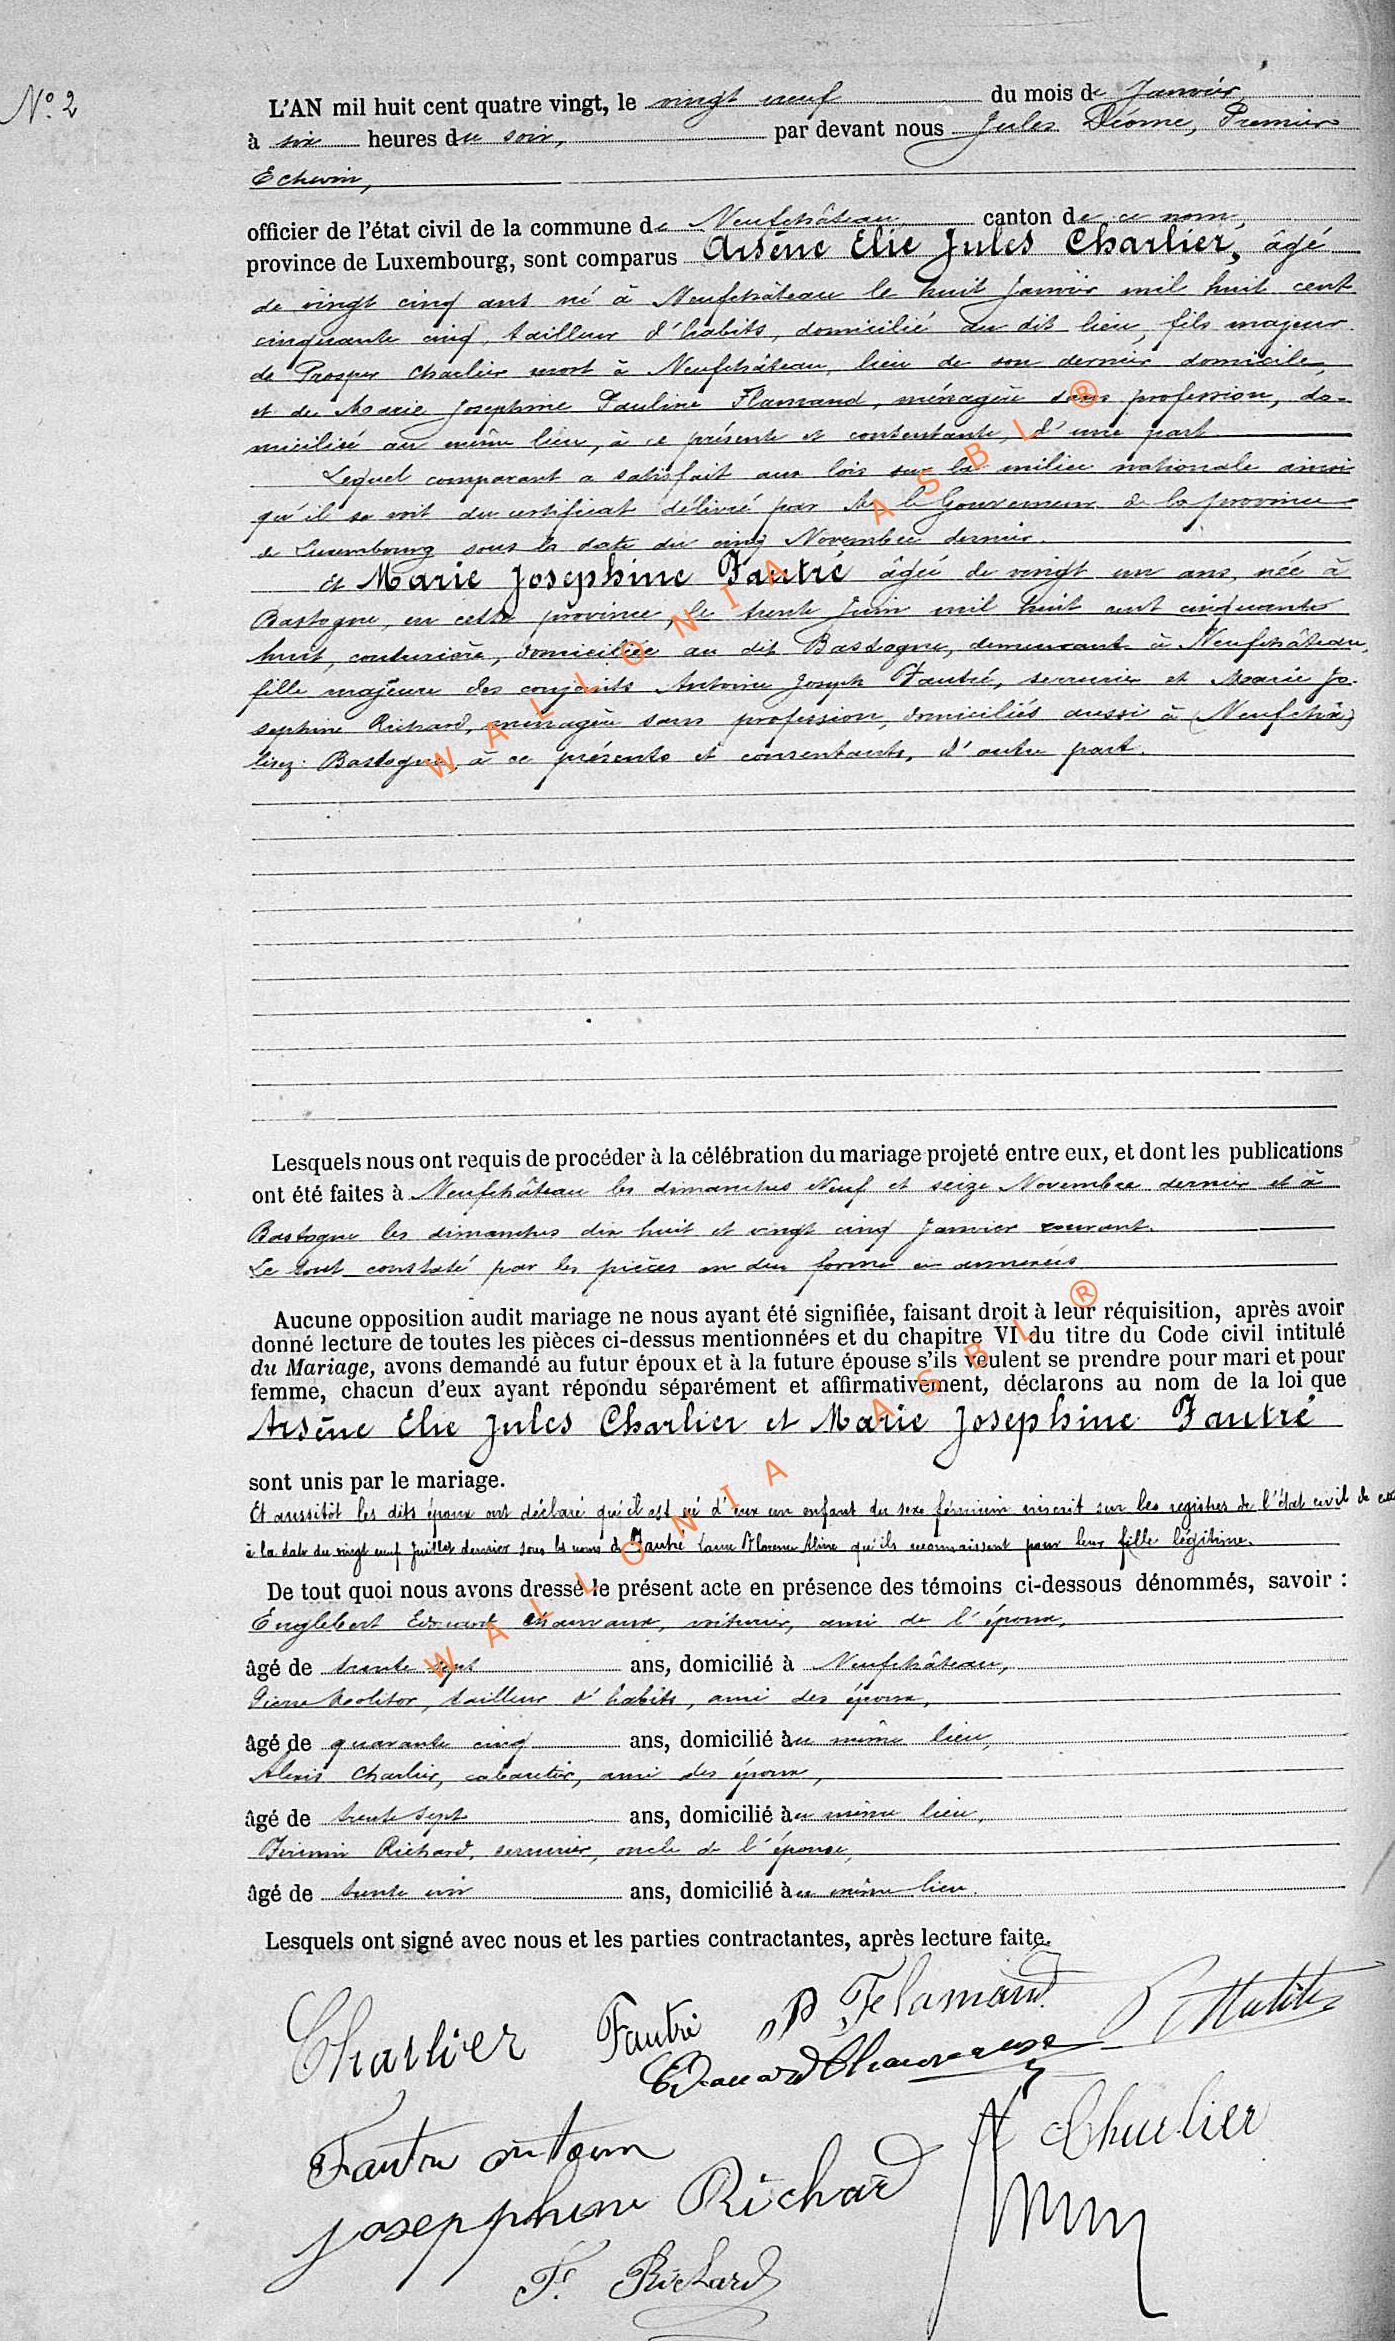 N° 2
L'AN mil huit cent quatre vingt, le vingt neuf du mois de Janvier
à six heures du soir, par devant nous Jules Diome, Premier
Echevin,
officier de l'état civil de la commune de Neufchâteau canton de ce nom,
province de Luxembourg, sont comparus Arsène Elie Jules Charlier, âgé
de vingt cinq ans né à Neufchâteau le huit Janvier mil huit cent
cinquante cinq, tailleur d'habits, domicilié au dit lieu, fils majeur
de Prosper Charlier mort à Neufchâteau, lieu de son dernier domicile,
et de Marie Josephine Pauline Flamand, ménagère sans profession, do-
miciliée au même lieu, à ce présente et consentante, d'une part
Lequel comparant a satisfait aux lois sur la milice nationale ainsi
qu'il se voit du certificat délivré par M. le Gouverneur de la province
de Luxembourg sous la date du cinq Novembre dernier.
Et Marie Josephine Fautré âgée de vingt un ans, née à
Bastogne, en cette province, le trente Juin mil huit cent cinquante
huit, couturière, domiciliée au dit Bastogne, demeurant à Neufchâteau,
fille majeure des conjoints Antoine Joseph Fautré, serrurier et Marie Jo-
sephine Richard, ménagère sans profession, domiciliés aussi à (Neufchâ)
lisez: Bastogne, à ce présents et consentants, d'autre part.
Lesquels nous ont requis de procéder à la célébration du mariage projeté entre eux, et dont les publications
ont été faites à Neufchâteau les dimanches Neuf et seize Novembre dernier et à
Bastogne les dimanches dix huit et vingt cinq Janvier courant.
Le tout constaté par les pièces en due forme ci annexées
Aucune opposition audit mariage ne nous ayant été signifiée, faisant droit à leur réquisition, après avoir
donné lecture de toutes les pièces ci-dessus mentionnées et du chapitre VI du titre du Code civil intitulé
du Mariage, avons demandé au futur époux et à la future épouse s'ils veulent se prendre pour mari et pour
femme, chacun d'eux ayant répondu séparément et affirmativement, déclarons au nom de la loi que
Arsène Elie Jules Charlier et Marie Josephine Fautré
sont unis par le mariage.
Et aussitôt les dits époux ont déclaré qu'il est né d'eux un enfant du sexe féminin inscrit sur les registres de l'état civil de
à la date du vingt neuf Juillet dernier sous les noms de Fautré Laure Florence Aline qu'ils reconnaissent pour leur fille légitime.
De tout quoi nous avons dressé le présent acte en présence des témoins ci-dessous dénommés, savoir :
Englebert Edouard Chauvaux, voiturier, ami de l'époux,
âgé de trente sept ans, domicilié à Neufchâteau,
Pierre Molitor, tailleur d'habits, ami des époux,
âgé de quarante cinq ans, domicilié au même lieu,
Alexis Charlier, cabaretier, ami des époux,
âgé de trente sept ans, domicilié au même lieu,
Firmin Richard, serrurier, oncle de l'épouse,
âgé de trente ans, domicilié au même lieu.
Lesquels ont signé avec nous et les parties contractantes, après lecture faite.
Charlier Fautré P Flamand
Edouard Chauvaux
Charlier
Fautré
Josepphine Richard
Fr Richard
WALLONIA ASBL ®
WALLONIA ASBL ®